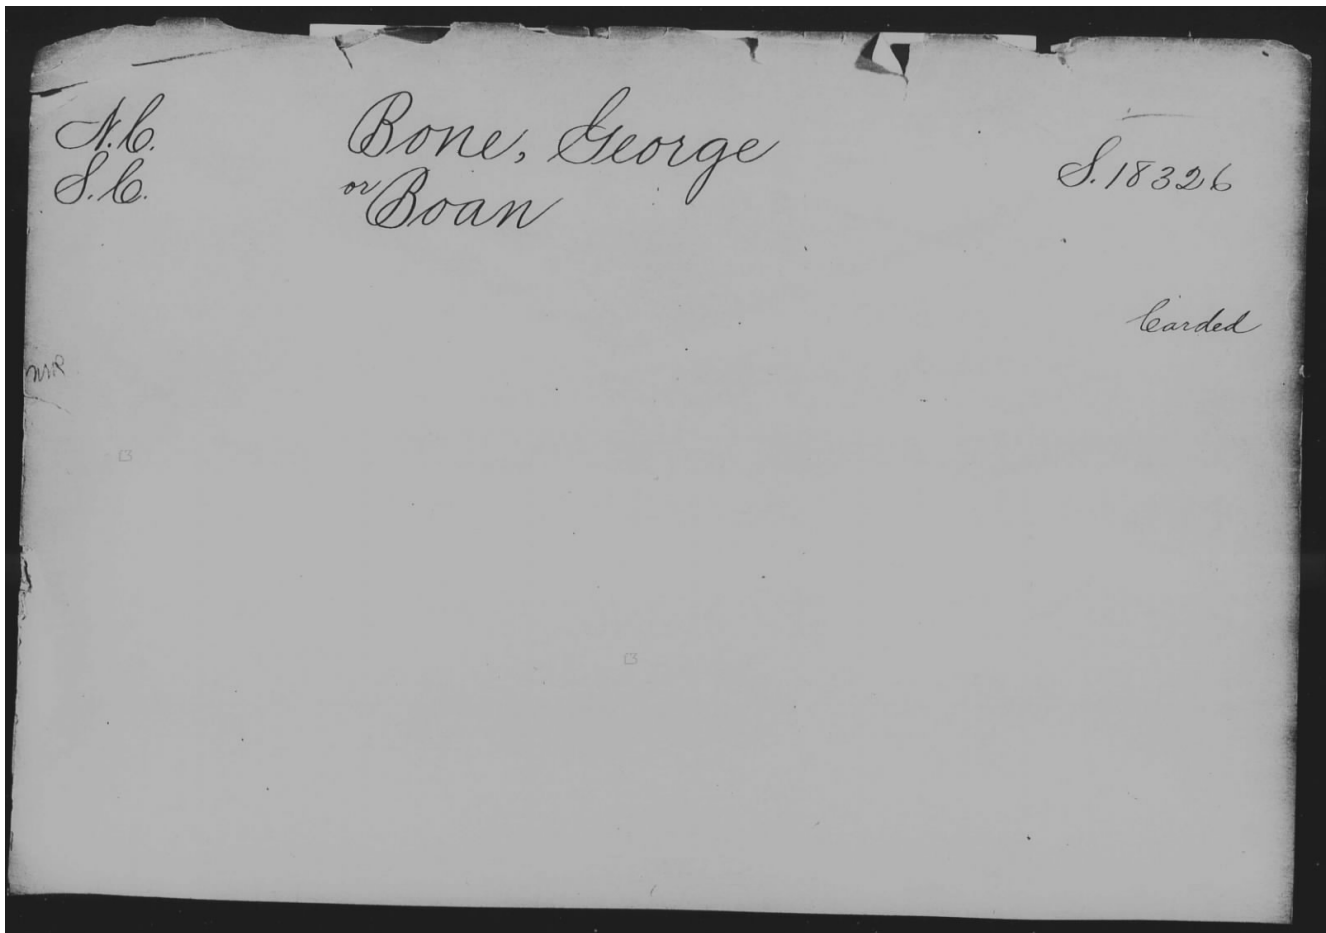 N.C. Bone, George
S.C. or Boan S.18326
Carded